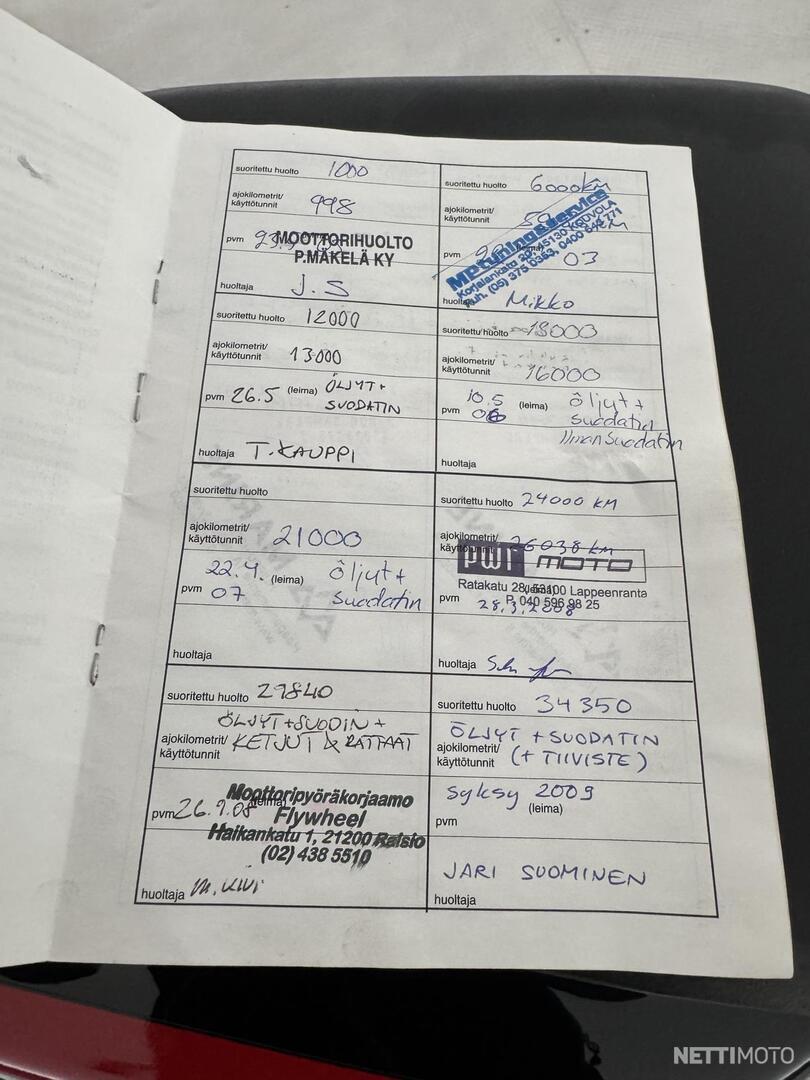 suoritettu huolto 1000
ajokilometrit/
käyttötunnit 998
pvm 23.
MOOTTORIHUOLTO
P.MÄKELÄ KY
huoltaja J.S
suoritettu huolto 6000km
ajokilometrit/
käyttötunnit
Mptuning&service
Korjalankatu 20, 45130 KOUVOLA
Puh. (05) 375 0353, 0400
pvm (leima) 03
huoltaja Mikko
suoritettu huolto 12000
ajokilometrit/
käyttötunnit 13000
pvm 26.5 (leima) ÖLJYT+
SUODATIN
huoltaja T.KAUPPI
suoritettu huolto 18000
ajokilometrit/
käyttötunnit 16000
10.5
pvm 06 (leima) öljyt +
suodatin
ilmansuodatin
huoltaja
suoritettu huolto
ajokilometrit/
käyttötunnit 21000
22.4. (leima) öljyt +
pvm 07 suodatin
huoltaja
suoritettu huolto 24000 KM
ajokilometrit/
käyttötunnit 26038 km
PWT MOTO
Ratakatu 28, 53100 Lappeenranta
(leima)
P. 040 596 98 25
pvm 28.3.2008
huoltaja
suoritettu huolto 29840
ÖLJYT+SUODIN+
ajokilometrit/
käyttötunnit KETJUT & RATTAAT
pvm 26.9.08 (leima)
Moottoripyöräkorjaamo
Flywheel
Haikankatu 1, 21200 Raisio
(02) 438 5510
huoltaja M. Kivi
suoritettu huolto 34350
ÖLJYT + SUODATIN
ajokilometrit/
käyttötunnit (+ TIIVISTE)
syksy 2009
(leima)
pvm
JARI SUOMINEN
huoltaja
NETTIMOTO